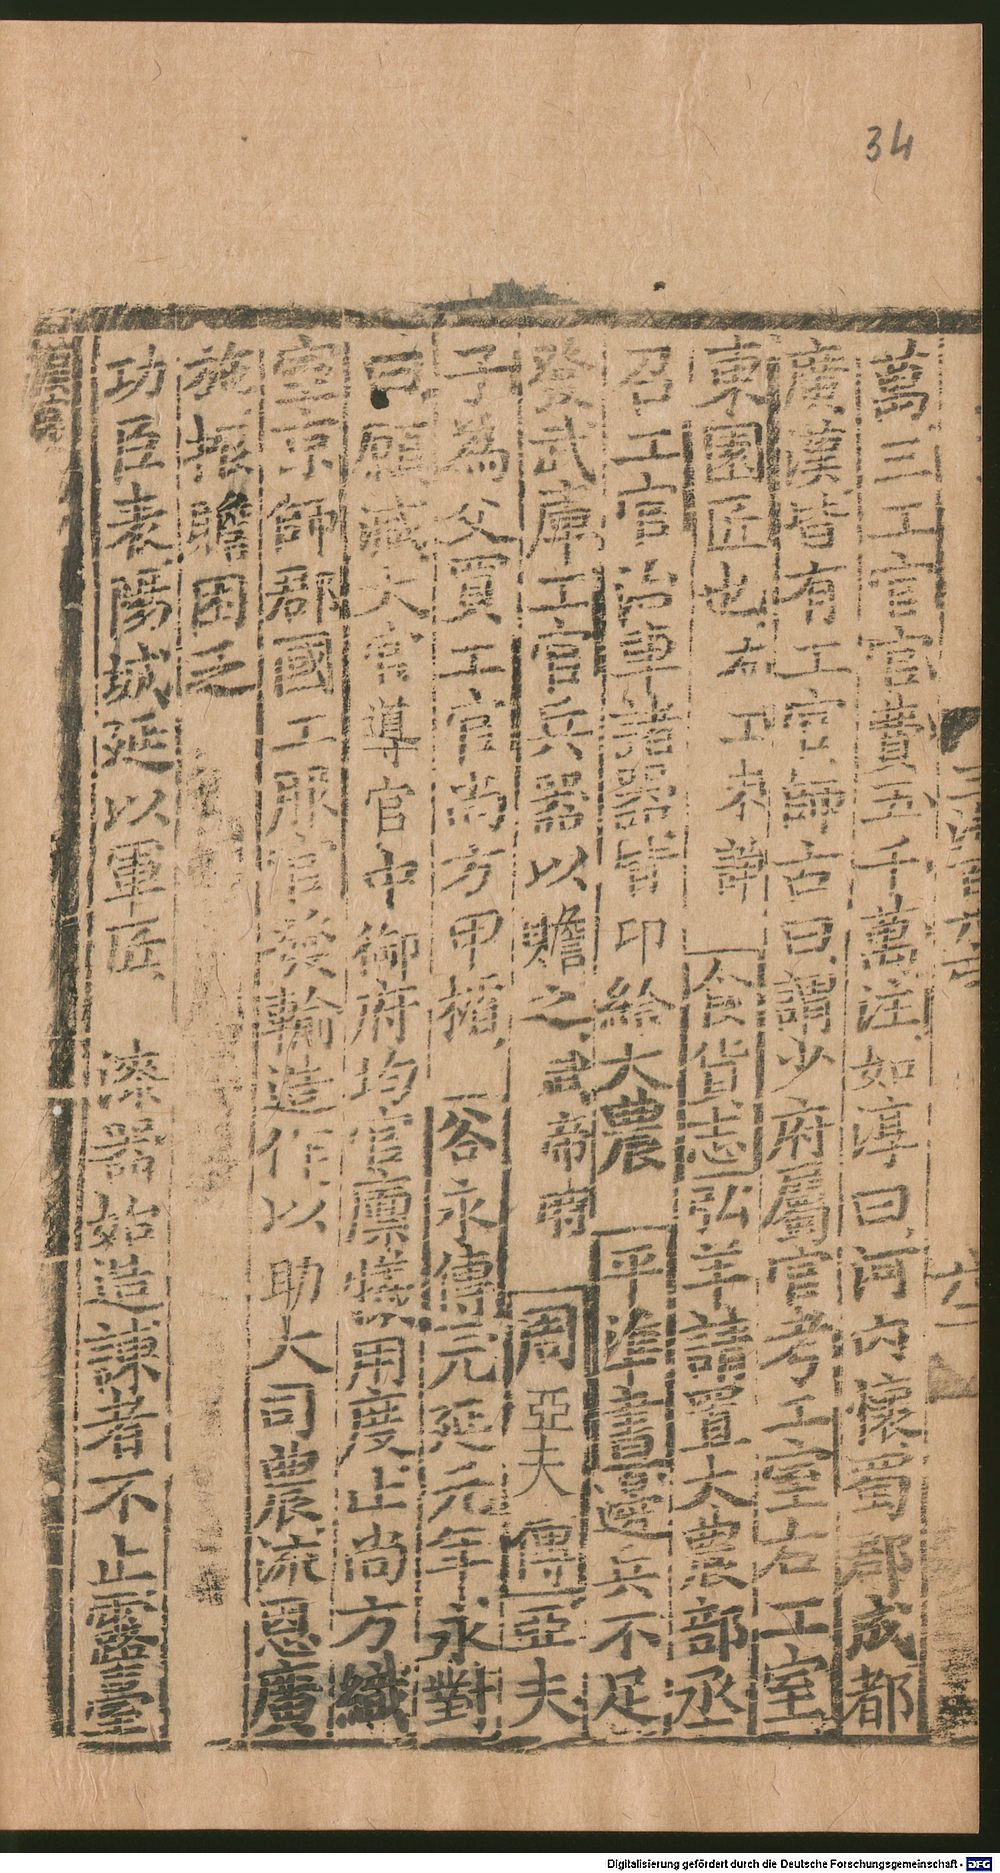 34
萬三工官官費五千萬注如淳曰河內懷蜀郡成都
廣漢皆有工官師古曰謂少府屬官考工室右工室
東園匠也 右工未詳 食貨志弘羊請置大農部丞
召工官治車諸器皆印給大農 平準書邊兵不足
發武庫工官兵器以贍之武帝時 周亞夫傳亞夫
子為父買工官尚方甲楯 谷永傳元延元年永對
曰願減大官導官中御府均官廩犧用度止尚方織
室京師郡國工服官發輸造作以助大司農流恩廣
施振贍困乏
功臣表陽城延以軍匠 漆器始造諫者不止露臺
Digitalisierung gefördert durch die Deutsche Forschungsgemeinschaft - DFG